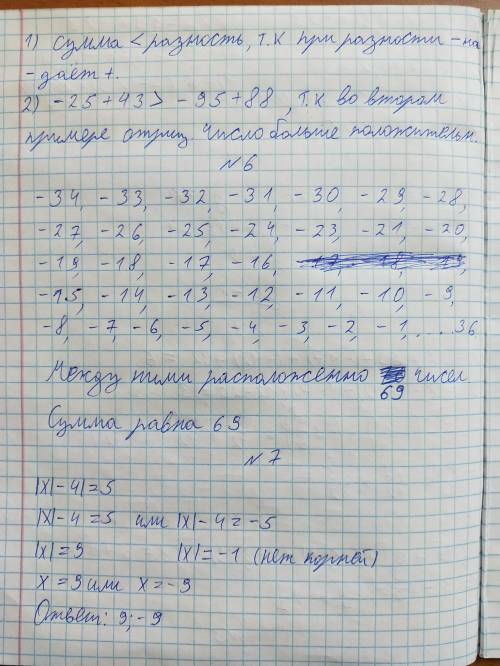 1) сумма < разность, т.к при разности - на
- даёт +.
2) -25+43 > -95+88, т.к во втором
примере отриц. число больше положительн.
№6
-34, -33, -32, -31, -30, -29, -28,
-27, -26, -25, -24, -23, -21, -20,
-19, -18, -17, -16,
-15, -14, -13, -12, -11, -10, -9,
-8, -7, -6, -5, -4, -3, -2, -1, ... 36
Между ними расположенно 69 чисел
Сумма равна 69
№7
|X|-4|=5
|X|-4=5 или |X|-4=-5
|X|=9 |X|=-1 (нет корней)
X=9 или X=-9
Ответ: 9; -9